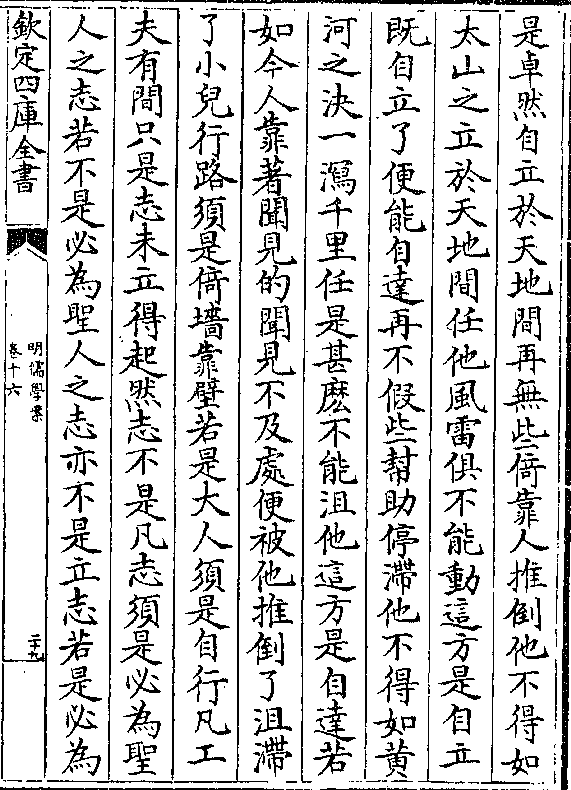 是卓然自立於天地間再無些倚靠人推倒他不得如
太山之立於天地間任他風雷俱不能動這方是自立
既自立了便能自達再不假些幫助停滯他不得如黄
河之決一瀉千里任是甚麽不能沮他這方是自達若
如今人靠著聞見的聞見不及處便被他推倒了沮滯
了小兒行路須是倚墻靠壁若是大人須是自行凡工
夫有間只是志未立得起然志不是凡志須是必為聖
人之志若不是必為聖人之志亦不是立志若是必為
欽定四庫全書
明儒學案
卷十六
二十九